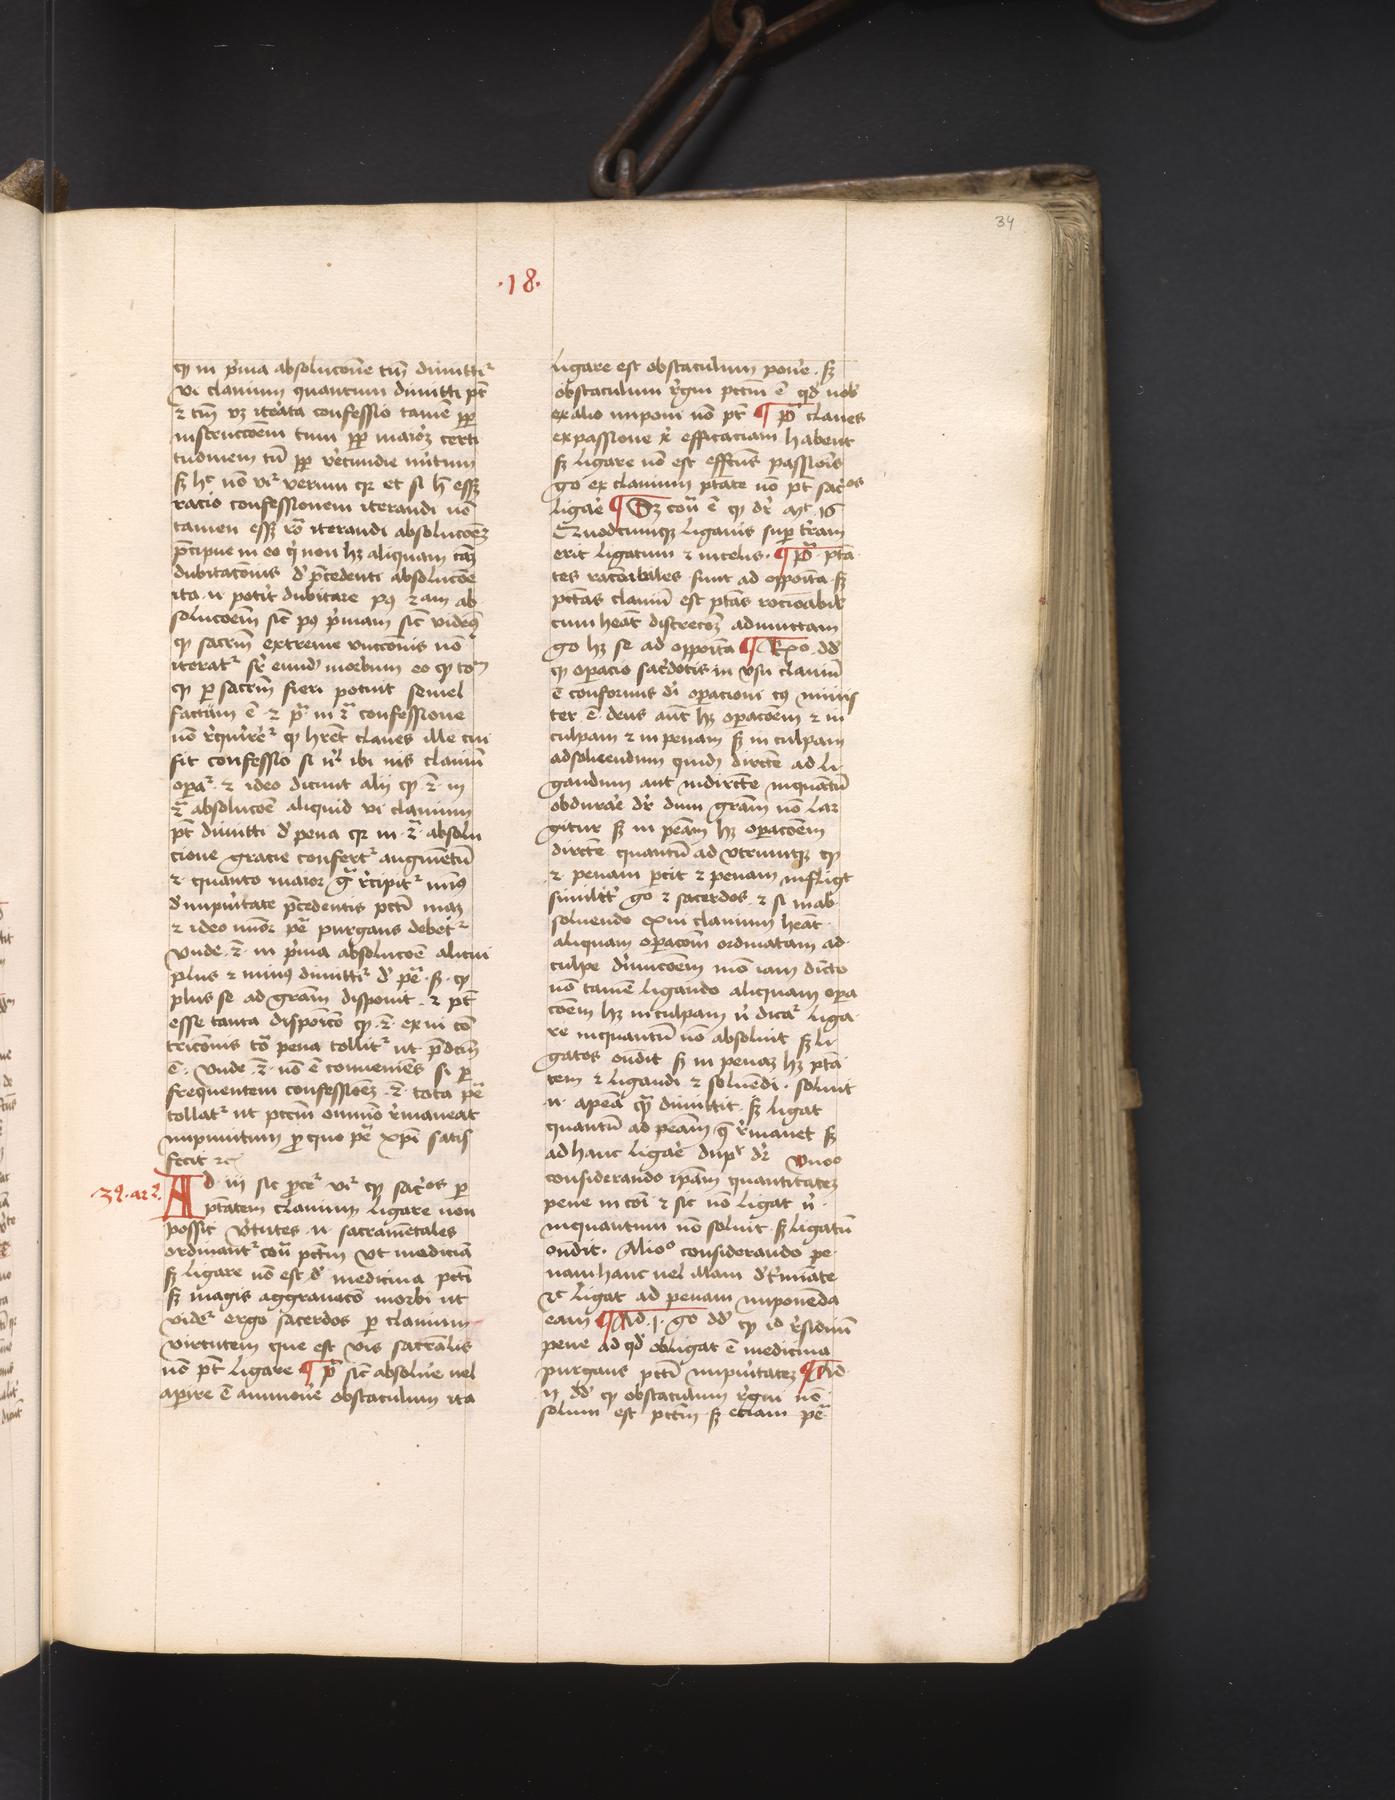 34
.18.
qͥ in p̄ma absolucōne tm̄ dimittit᷑
vi clavium quantum dimitti pt̄
ꝛ tm̄ vꝫ iterata confessio tamē ꝓpt̄
instructōem tum ꝓpt̄ maiorē certi
tudinem tū ꝓpt̄ v̓ecundie m̓itum
sꝫ hͨ nō vr̄ verum qꝛ et si hͨ esset
racio confessionem iterandi nō
tamen esset rō iterandi absolucōeꝫ
p̄cipue in eo qͥ non hꝫ aliquam cām
dubitacōnis d̓ p̄cedenti absolucōe
ita .n. poterit dubitare pꝰ ꝛam ab
solucōem sic̄ pꝰ p̄mam sic̄ videmꝰ
qͥ sacrm̄ extreme unctōnis nō
iterat᷑ sr̄ eund̓ morbum eo qͥ totū
qͥ ꝑ sacrm̄ fieri potuit semel
factum ē ꝛ p̄ᵗ in ꝛᵃ confessione
nō req̓rēr᷑ qͥ hr̄et claves ille cui
fit confessio si nͥͪl ibi vis clavium
opat᷑ ꝛ ideo dicunt alii qͥ ꝛ̄ in
ꝛᵃ absolucōe aliquid vi clavium
pt̄ dimitti d̓ pena qꝛ in ꝛᵃ absolu
cione gracie confert᷑ augmētū
ꝛ quanto maior gͣ recipit᷑ minꝰ
d̓ impuritate p̄cedentis pctī manꝫ
ꝛ ideo minor pē purgans debet᷑
Vnde ꝛ̄ in p̄ma absolucōe alicui
plus ꝛ minꝰ dimittit᷑ d̓ pēᵃ sꝫ qͥ
plus se ad grām disponit ꝛ pt̄
esse tanta dispoīcō qͥ ꝛ̄ ex vi con
tricōnis tōᵃ pena tollit᷑ ut p̄dcm̄
ē. vnde ꝛ̄ nō ē conveniens si ꝑ
frequentem confessioēꝫ ꝛ̄ tota pēᵃ
tollat᷑ ut pctm̄ omnino remaneat
impunitum ꝓ quo pēᵃ xp̄i satis
fecit ꝛc̄
39. ar 2.
Ad iii sic ꝓcet᷑ vr̄ qͥ sac̓os ꝑ
ptātem clavium ligare non
possit Virtutes .n. sacramētales
ordinant᷑ cont̄ᵃ pctm̄ vt mediciā
sꝫ ligare nō est d̓ medicina pctī
sꝫ magis aggravatō morbi ut
videt᷑ ergo sacerdos ꝑ clavium
virtutem que est vis sacrāl̄is
nō pt̄ ligare ¶ p̄ᵗ sic̄ absolve vel
aperire ē ammove̓ obstaculum ita
ligare est obstaculum pone̓. sꝫ
obstaculum regni pctm̄ ē qd̓ nob̓
ex alio imponi nō pt̄ ¶ p̄ᵗ claves
ex passione x̄ efficaciam habent
sꝫ ligare nō est effcūs passiōis
go ex clavium ptāte nō pt̄ sac̓os
ligare ¶ Sꝫ cont̄ᵃ ē qͥ dr̄ mt̄ 16
Quodcumqꝫ ligavis sup̄ t̓ram
erit ligatum ꝛ in celis. ¶ p̄ᵗ ptā
tes racōabiles sunt ad oppoīta sꝫ
ptās clavium est ptās raciōabil̓
cum heāt discrecōꝫ adiunctam
go hꝫ se ad oppoīta ¶ Rño dd̄
qͥ operacio sac̓dotis in usu clavium
ē conformis di operacioni cuiꝰ minis
ter ē. deus aut̄ hꝫ operacōem ꝛ in
culpam ꝛ in penam sꝫ in culpam
ad solvendum quid̓ directe ad li
gandum aut indirecte inquantū
obdurare dr̄ dum grām nō lar
gitur sꝫ in peām hꝫ operacōem
directe quantū ad utrumqꝫ qͥ
ꝛ penam parcit ꝛ penam infligit
similit̓ go ꝛ sacerdos ꝛ si in ab
solvendo ex vi clavium heāt
aliquam operacōm ordinatam ad
culpe dimissōem modo iam dicto
nō tamē ligando aliquam opera
cōem hꝫ in culpam n̄ dicat᷑ liga
re inquantū nō absolvit sꝫ li
gatos ondit sꝫ in penaꝫ hꝫ ptā
tem ꝛ ligandi ꝛ solvēdi. solvit
.n. a peā quā dimittit sꝫ ligat
quantū ad peām q̄ remanet sꝫ
ad hanc ligare dupl̓ dr̄ vnoº
considerando ip̄am quantitateꝫ
pene in coī ꝛ sic nō ligat n̄
inquantum nō solvit sꝫ ligatū
ondit. Alioº considerando pe
nam hanc vel illam det̓miate
ꝛ c̄ ligat ad penam imponēda
eam ¶ Ad .1. go dd̄ qͥ id residuū
pene ad qd̓ obligat ē medicina
purgans pctī impuritateꝫ ¶ Ad
ii dd̄ qͥ obstaculum regni nō
solum est pctm̄ sꝫ etiam pēᵃ